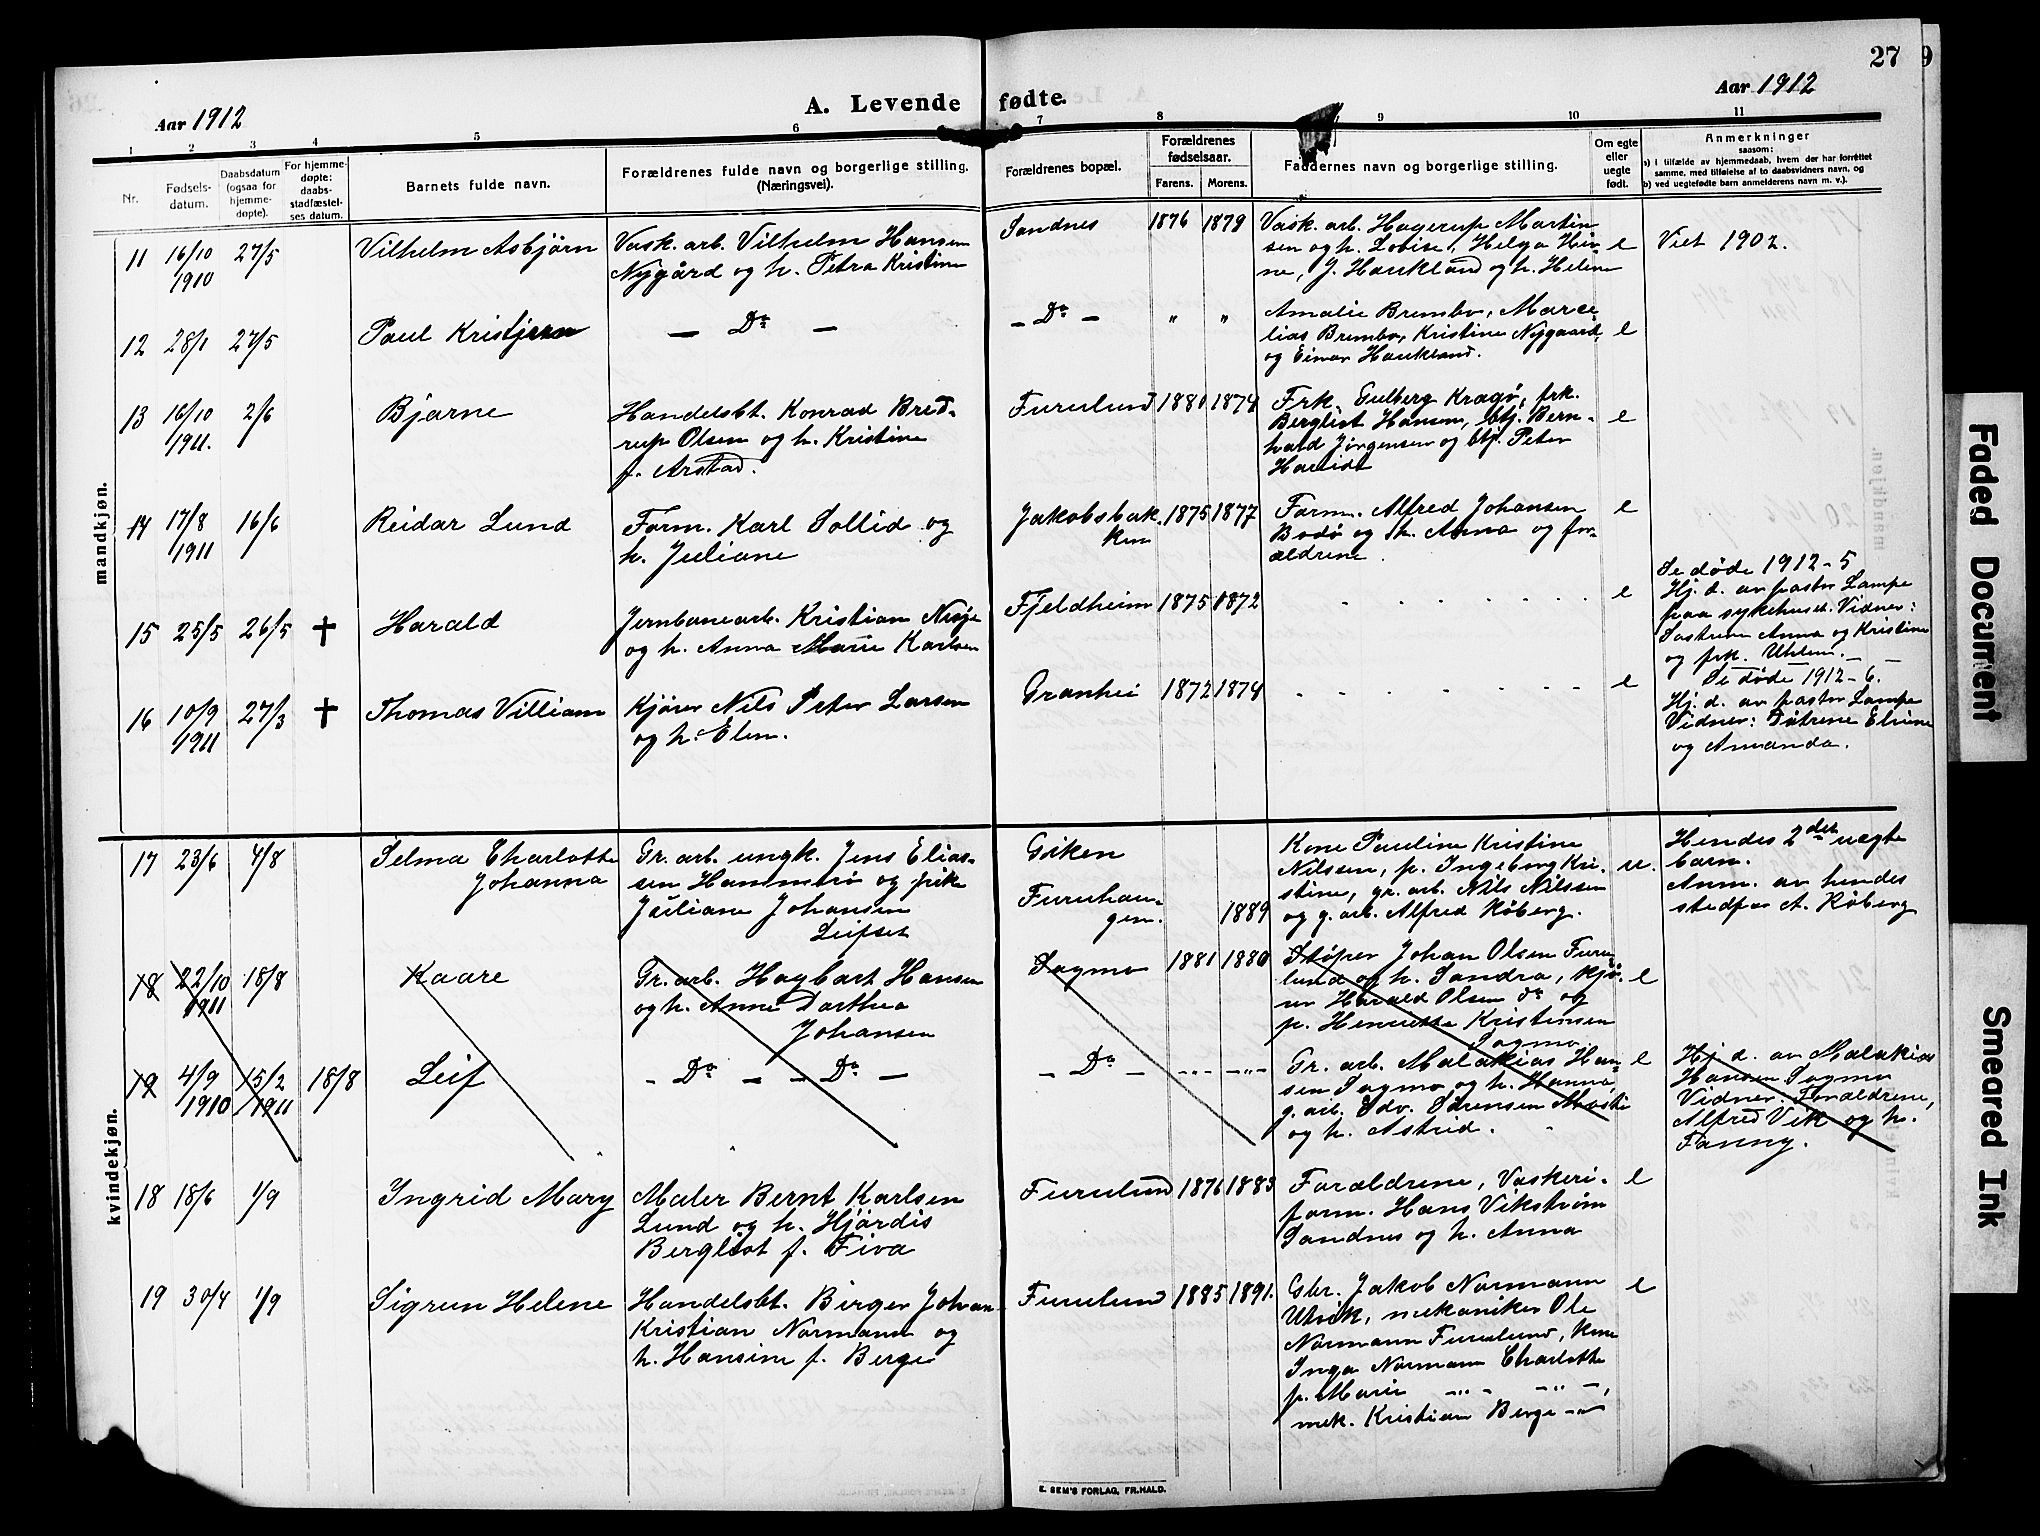 27 9
Aar 1912
A. Levende fødte.
Aar 1912
1 2 3 4 5 6 7 8 9 10 11
Nr.
Fødsels-
datum.
Daabsdatum
(ogsaa for
hjemme-
døpte).
For hjemme-
døpte:
daabs-
stadfæstel-
ses datum.
Barnets fulde navn.
Forældrenes fulde navn og borgerlige stilling.
(Næringsvei).
Forældrenes bopæl.
Forældrenes
fødselsaar.
Farens. Morens.
Faddernes navn og borgerlige stilling.
Om egte
eller
uegte
født.
Anmerkninger
saasom:
a) i tilfælde av hjemmedaab, hvem der har forrettet
samme, med tilføielse af to daabsvidners navn, og
b) ved uegtefødte barn anmelderens navn m. v.).
mandkjøn.
11 16/10 1910 27/5
Vilhelm Asbjörn
Vask. arb. Vilhelm Hansen
Nygård og h. Petra Kristine
Sandnes 1876 1879
Vask. arb. Hagerup Martin
sen og h. Lovise, Helga Hei-
ne, J. Haukland og h. Helene
e
Viet 1902.
12 28/1 27/5
Paul Kristjern
— Do —
— Do — " "
Amalie Brembo, Marce
lias Brembo, Kristine Nygaard,
og Einar Haukland.
e
13 16/10 1911. 2/6
Bjarne
Handelsbt. Konrad Bred-
rup Olsen og h. Kristine
f. Arstad.
Furulund 1881 1874
Frk. Gulberg Kragø, frk.
Bergliot Hansen, btj. Bern-
hard Jørgensen og btj. Peter
Hamidt
e
14 17/8 1911 16/6
Reidar Lund
Form. Karl Sollid og
h. Juliane
Jakobsbak
ken 1875 1877
Form. Alfred Johansen
Bodø og h. Anna og for-
ældrene.
e
15 25/5 26/5 †
Harald
Jernbanearb. Kristian Nesje
og h. Anna Marie Karlsen
Fjeldheim 1875 1872
e
Se døde 1912-5
Hj. d. av pastor Lampe
paa sykehuset. Vidner:
Søstrene Anna og Kristine
og frk. Uhlem.
16 10/9 1911 27/3 †
Thomas Villiam
Kjører Nils Peter Larsen
og h. Elen.
Granhei 1872 1874
e
Se døde 1912-6.
Hj. d. av pastor Lampe
Vidner: Døtrene Elvine
og Amanda.
kvindekjøn.
17 23/6 4/8
Selma Charlotte
Johanna
Gr. arb. ungk. Jens Elias-
sen Hammerø og pike
Juliane Johansen
Leifset
Giken
Furuhau-
gen. 1889
Kone Pauline Kristine
Nilsen, p. Ingeborg Kri-
stine, gr. arb. Nils Nilssen
og g. arb. Alfred Røberg.
u.
Hendes 2det uegte
barn.
Anm. av hendes
stedfar A. Røberg
18 22/10 1911 18/8
Kaare
Gr. arb. Hagbart Hansen
og h. Anne Dorthea
Johansen
Sagmo 1881 1880
Støper Johan Olsen Furu
lund og h. Sandra, kjø-
rer Harald Olsen do og
p. Henriette Kristensen
Sagmo
e
19 4/9 1910 15/2 1911 18/8
Leif
— Do — — Do —
— Do —
Gr. arb. Malakias Han-
sen Sagmo og h. Hanna,
g. arb. Edv. Sørensen Mosti
og h. Astrid.
e
Hj d. av Malakias
Hansen Sagmo
Vidner: Forældrene,
Alfred Vik og h.
Fanny.
18 18/6 1/9
Ingrid Mary
Maler Bernt Karlsen
Lund og h. Hjørdis
Bergliot f. Fiva
Furulund 1876 1883
Forældrene, Vaskeri-
form. Hans Vikstrøm
Sandnes og h. Anna
e
19 30/4 1/9
Sigrun Helene
Handelsbt. Birger Johan
Kristian Normann og
h. Hansine f. Berge
Furulund 1885 1891.
Gbr. Jakob Normann
Utvik, mekaniker Ole
Normann Furulund, kone
Inga Normann Charlotte
p. Marie
mek. Kristian Berge
E. SEM'S FORLAG, FR.HALD.
Faded Document
Smeared Ink